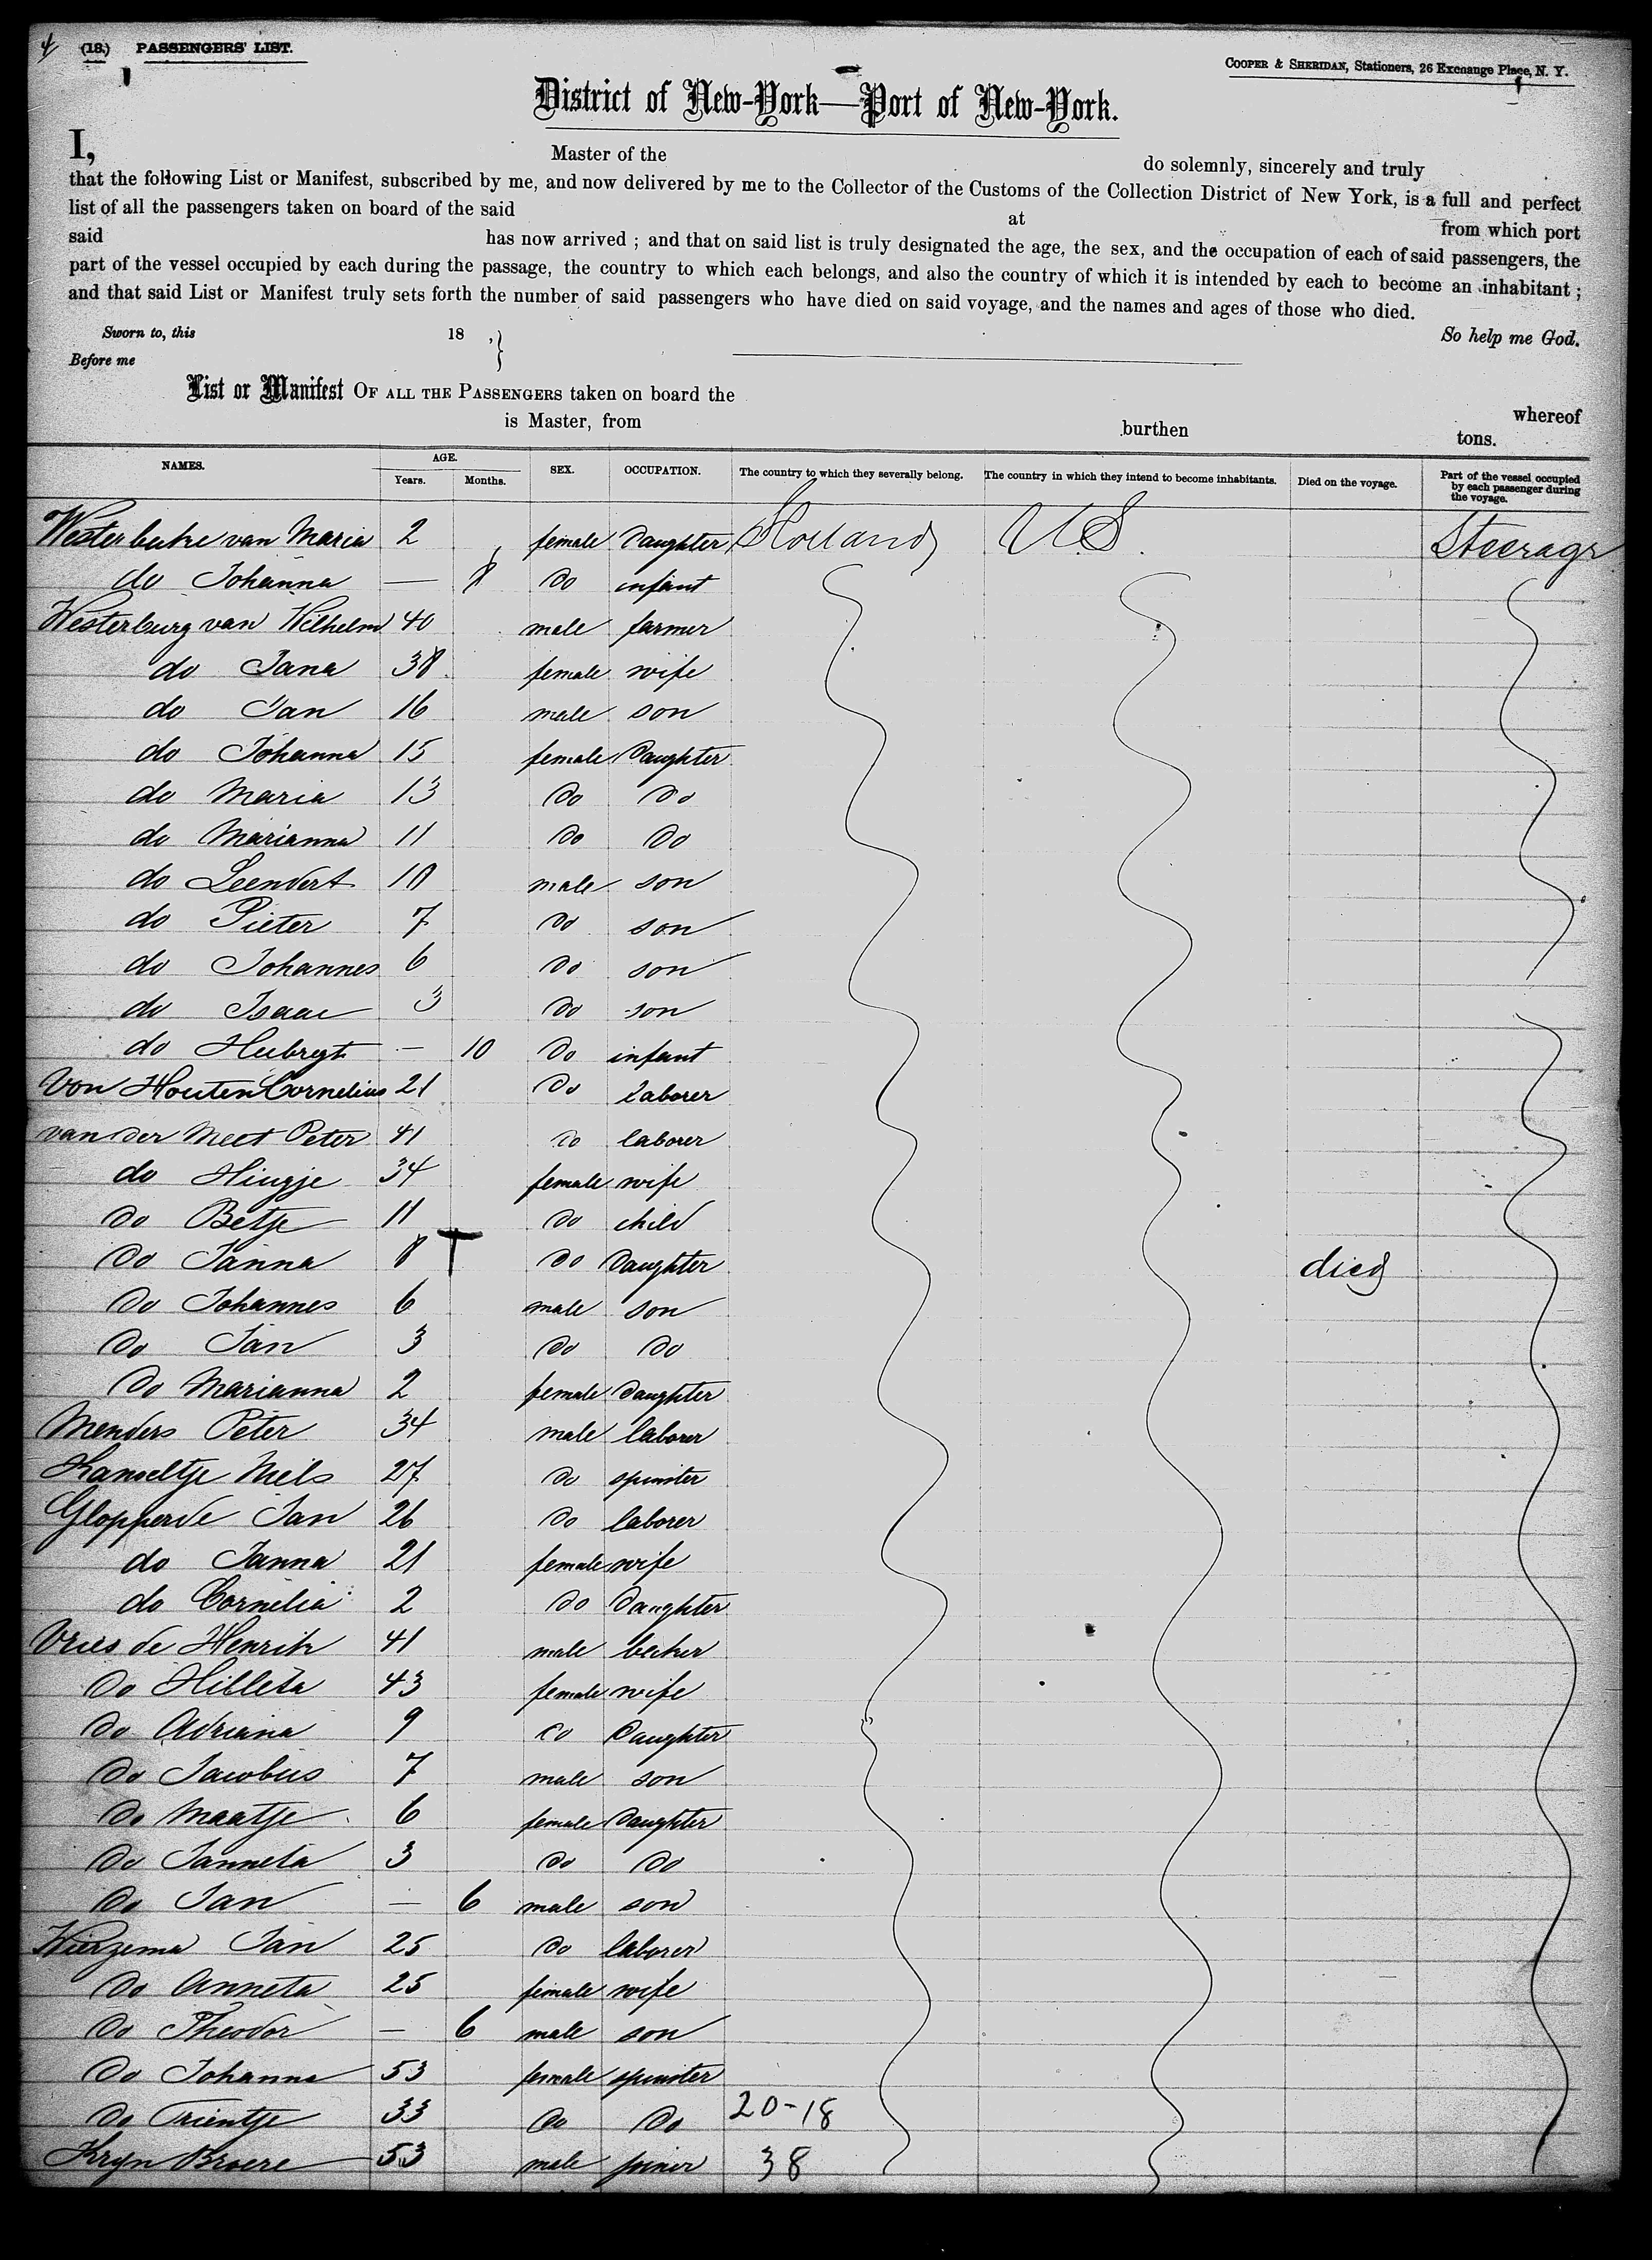 4 (18.) PASSENGERS' LIST.
COOPER & SHERIDAN, Stationers, 26 Exchange Place, N. Y.
District of New-York—Port of New-York.
I, Master of the do solemnly, sincerely and truly
that the following List or Manifest, subscribed by me, and now delivered by me to the Collector of the Customs of the Collection District of New York, is a full and perfect
list of all the passengers taken on board of the said at from which port
said has now arrived ; and that on said list is truly designated the age, the sex, and the occupation of each of said passengers, the
part of the vessel occupied by each during the passage, the country to which each belongs, and also the country of which it is intended by each to become an inhabitant ;
and that said List or Manifest truly sets forth the number of said passengers who have died on said voyage, and the names and ages of those who died.
Sworn to, this 18 , So help me God.
Before me
List or Manifest OF ALL THE PASSENGERS taken on board the whereof
is Master, from burthen tons.
NAMES. AGE. Years. Months. SEX. OCCUPATION. The country to which they severally belong. The country in which they intend to become inhabitants. Died on the voyage. Part of the vessel occupied by each passenger during the voyage.
van Maria 2 female Daughter Holland U.S. Steerage
do Johanna — 8 Do infant
Westerburg van Wilhelm 40 male farmer
do Jana 38 female wife
do Jan 16 male son
do Johanna 15 female Daughter
do Maria 13 Do Do
do Marianna 11 Do Do
do Leendert 10 male son
do Pieter 7 Do son
do Johannes 6 Do son
do Isaac 3 Do son
do Hubregt — 10 Do infant
Von Houten Cornelius 21 Do Laborer
van der Meet Peter 41 Do laborer
do 34 female wife
Do Betje 11 Do child
Do Janna 8 Do Daughter died
Do Johannes 6 male son
Do Jan 3 Do Do
Do Marianna 2 female Daughter
Menders Peter 34 male laborer
Nels 27 Do spinster
Glopperde Jan 26 Do laborer
do Janna 21 female wife
do Cornelia 2 Do Daughter
Vries de Henrik 41 male
Do Hilleta 43 female wife
Do Adriana 9 Do Daughter
Do Jacobus 7 male son
Do Maatje 6 female Daughter
Do Janneta 3 Do Do
Do Jan — 6 male son
Wierzema Jan 25 Do laborer
Do Anneta 25 female wife
Do Theodor — 6 male son
Do Johanna 53 female spinster
Do Trientje 33 Do Do 20-18
Kryn Broere 53 male joiner 38